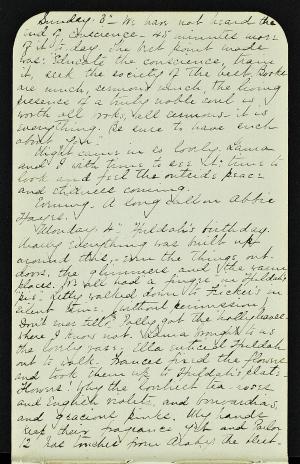 Sunday. 3d We have not heard the
end of Conscience - 45 minutes more
of it to-day. The best point made
was: Educate the conscience, train
it, seek the society of the best. Books
are much, sermons much, the living
presence of a truly noble soul is
worth all books, all sermons - it is
everything. Be sure to have such
about you.
Night came in so lovely.
and I with time to see it; time to
look and feel the outside peace
and
Evening. A long call on Abbie
Monday. 4th Huldah's birthday.
Nearly everything was built up
around this, even the things out-
doors, the glimmers and the
places. We all had a finger in Huldah's
pie. Letty walked down to
silent time (without permission!
Don't ever tell!) Polly got the
where I know not.
the lovely vase. Etta enticed Huldah
out to walk. Frances fixed the flowers
and took them up to Huldah's
Flowers! Why the loveliest tea-roses
and English violets, and bouvardias,
and gracious pinks. My hands
keep their fragrance yet and Parlor
has touches from